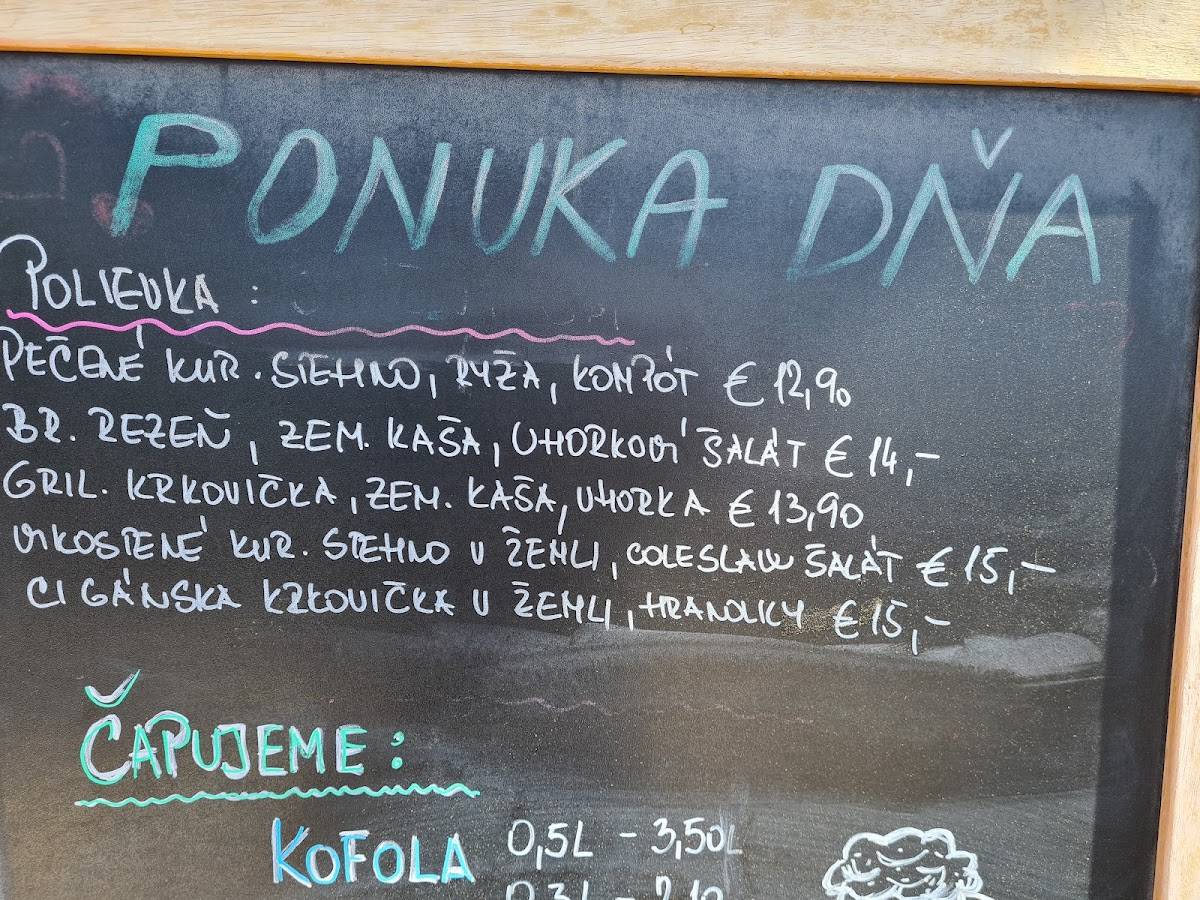 PONUKA DŇA
POLIEVKA :
PEČENÉ KUR. STEHNO, RYŽA, KOMPÓT € 12,90
BR. REZEŇ, ZEM. KAŠA, UHORKOVÍ ŠALÁT € 14,-
GRIL. KRKOVIČKA, ZEM. KAŠA, UHORKA € 13,90
VIKOSTENÉ KUR. STEHNO V ŽEMLI, COLESLAW ŠALÁT € 15,-
CIGÁNSKA KRKOVIČKA V ŽEMLI, HRANOLKY € 15,-
ČAPUJEME :
KOFOLA 0,5L - 3,50L
0,3L - 2,10